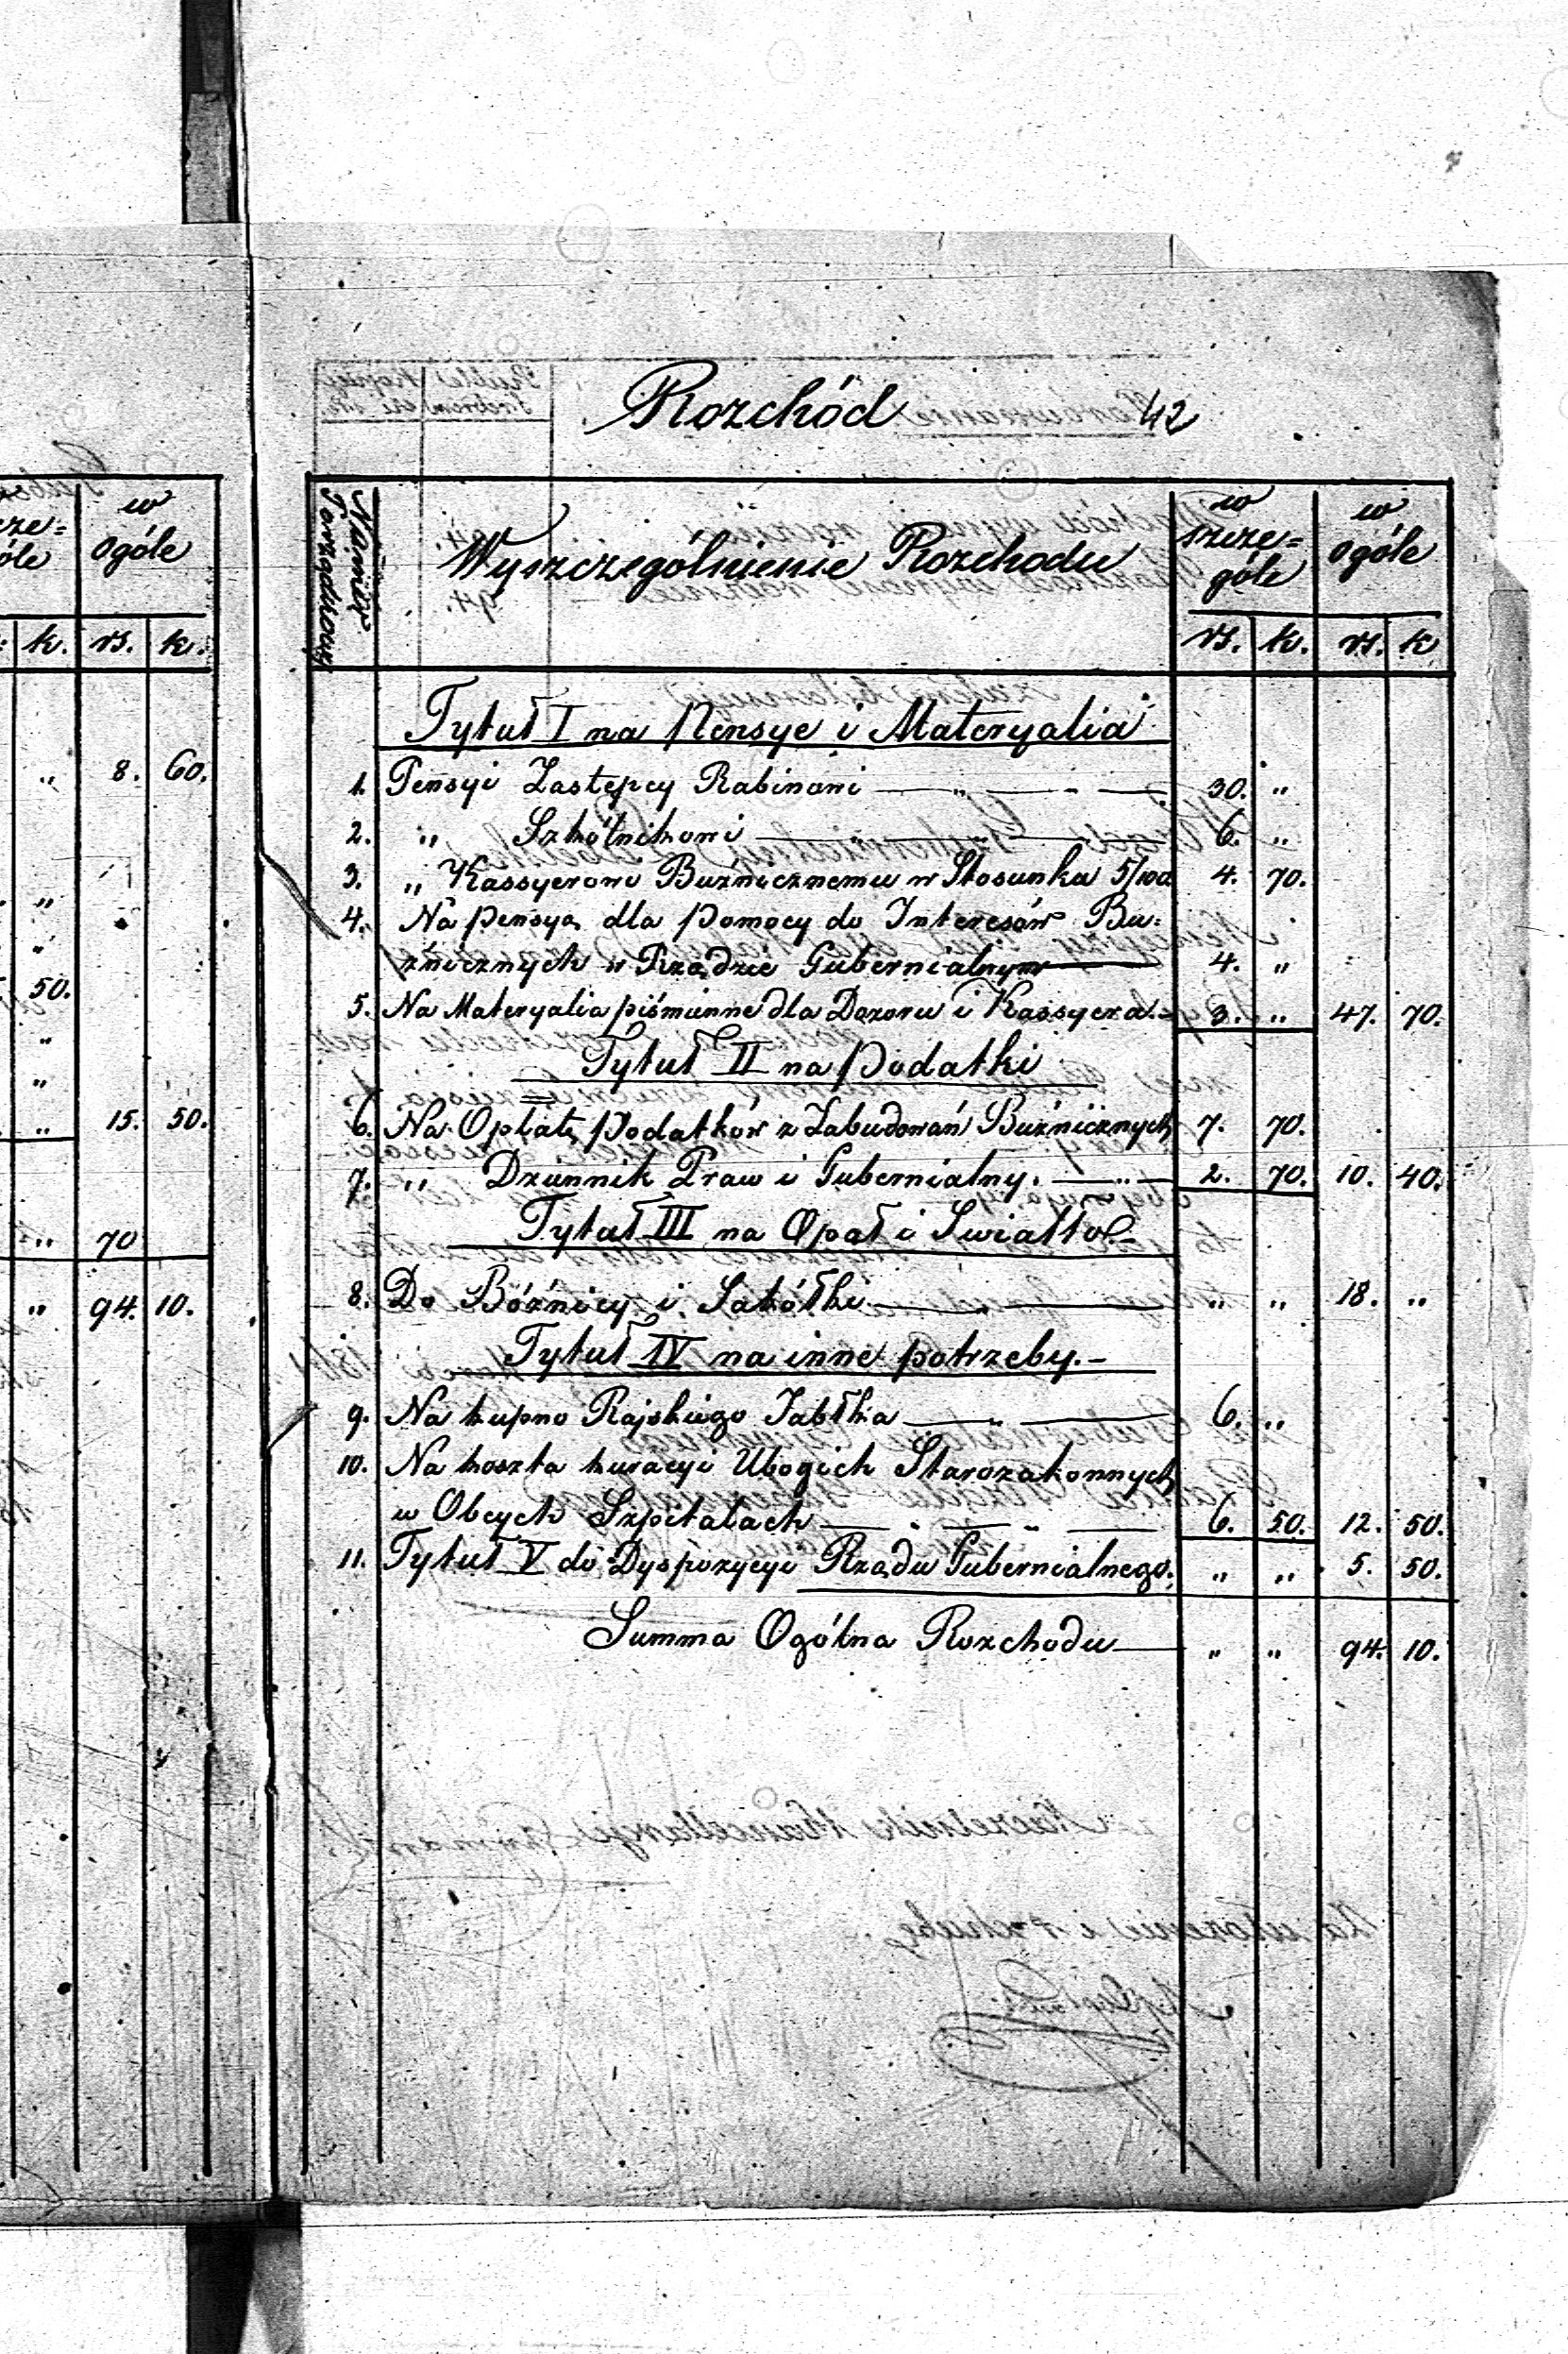 Rozchód 42
w szcze= góle
w ogóle
Numer Porządkowy
Wyszczególnienie Rozchodu
w szcze= góle
w ogóle
k. rs. k.
rs. k. rs. k
Tytuł I na Pensye i Materyalia
1. Pensyi Zastępcy Rabinowi — „ — 30. „
„ 8. 60.
2. „ Szkólnikowi — 6. „
3. „ Kassyerowi Buźnicznemu w Stosunku 5/100 4. 70.
„
4. Na pensyą dla pomocy do Interesów Bu=
„
źnicznych w Rządzie Gubernialnym — 4. „
50.
5. Na Materyalia piśmienne dla Dozoru i Kassyera. – 3. „ 47. 70.
„
Tytuł II na Podatki
„
6. Na Opłatę Podatków z Zabudowań Buźnicznych 7. 70.
„ 15. 50.
7. „ Dziennik Praw i Gubernialny. — „ — 2. 70. 10. 40.
Tytuł III na Opał i Swiatło –
„ 70
8. Do Bóźnicy i Szkółki — „ — „ „ 18. „
„ 94. 10.
Tytuł IV na inne potrzeby. –
9. Na kupno Rajskiego Jabłka — „ — 6. „
10. Na koszta kuracyi Ubogich Starozakonnych
w Obcych Szpitalach — „ — „ — 6. 50. 12. 50.
11. Tytuł V do Dyspozycyi Rządu Gubernialnego. „ „ 5. 50.
Summa Ogólna Rozchodu — „ „ 94. 10.